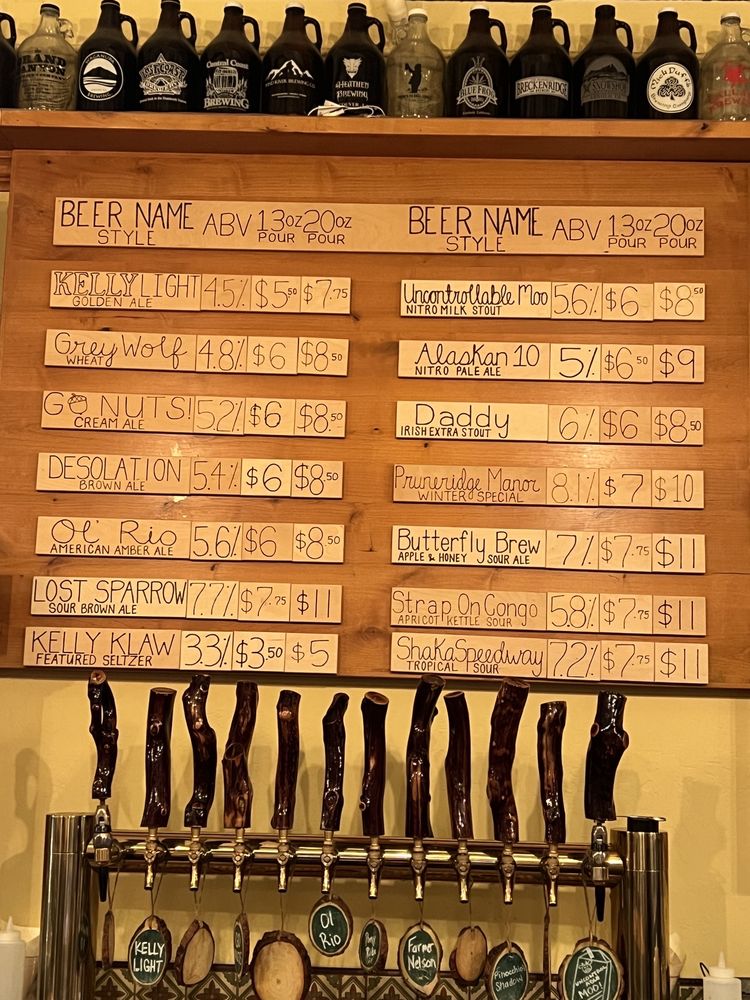 GRAND
CANYON
Central Coast
BREWING
MAD RIVER BREWING
HEATHEN
BREWING
BLUE FROG
BRECKENRIDGE
SNOWSHOE
BEER NAME ABV 13oz 20oz
STYLE POUR POUR
KELLY LIGHT 4.5% $5.50 $7.75
GOLDEN ALE
Grey Wolf 4.8% $6 $8.50
WHEAT
GO NUTS! 5.2% $6 $8.50
CREAM ALE
DESOLATION 5.4% $6 $8.50
BROWN ALE
Ol' Rio 5.6% $6 $8.50
AMERICAN AMBER ALE
LOST SPARROW 7.7% $7.75 $11
SOUR BROWN ALE
KELLY KLAW 3.3% $3.50 $5
FEATURED SELTZER
BEER NAME ABV 13oz 20oz
STYLE POUR POUR
Uncontrollable Moo 5.6% $6 $8.50
NITRO MILK STOUT
Alaskan 10 5% $6.50 $9
NITRO PALE ALE
Daddy 6% $6 $8.50
IRISH EXTRA STOUT
Pruneridge Manor 8.1% $7 $10
WINTER SPECIAL
Butterfly Brew 7% $7.75 $11
APPLE & HONEY SOUR ALE
Strap On Congo 5.8% $7.75 $11
APRICOT KETTLE SOUR
ShakaSpeedway 7.2% $7.75 $11
TROPICAL SOUR
KELLY
LIGHT
Ol
Rio
Farmer
Nelson
Pinocchio's
Shadow
MOO!